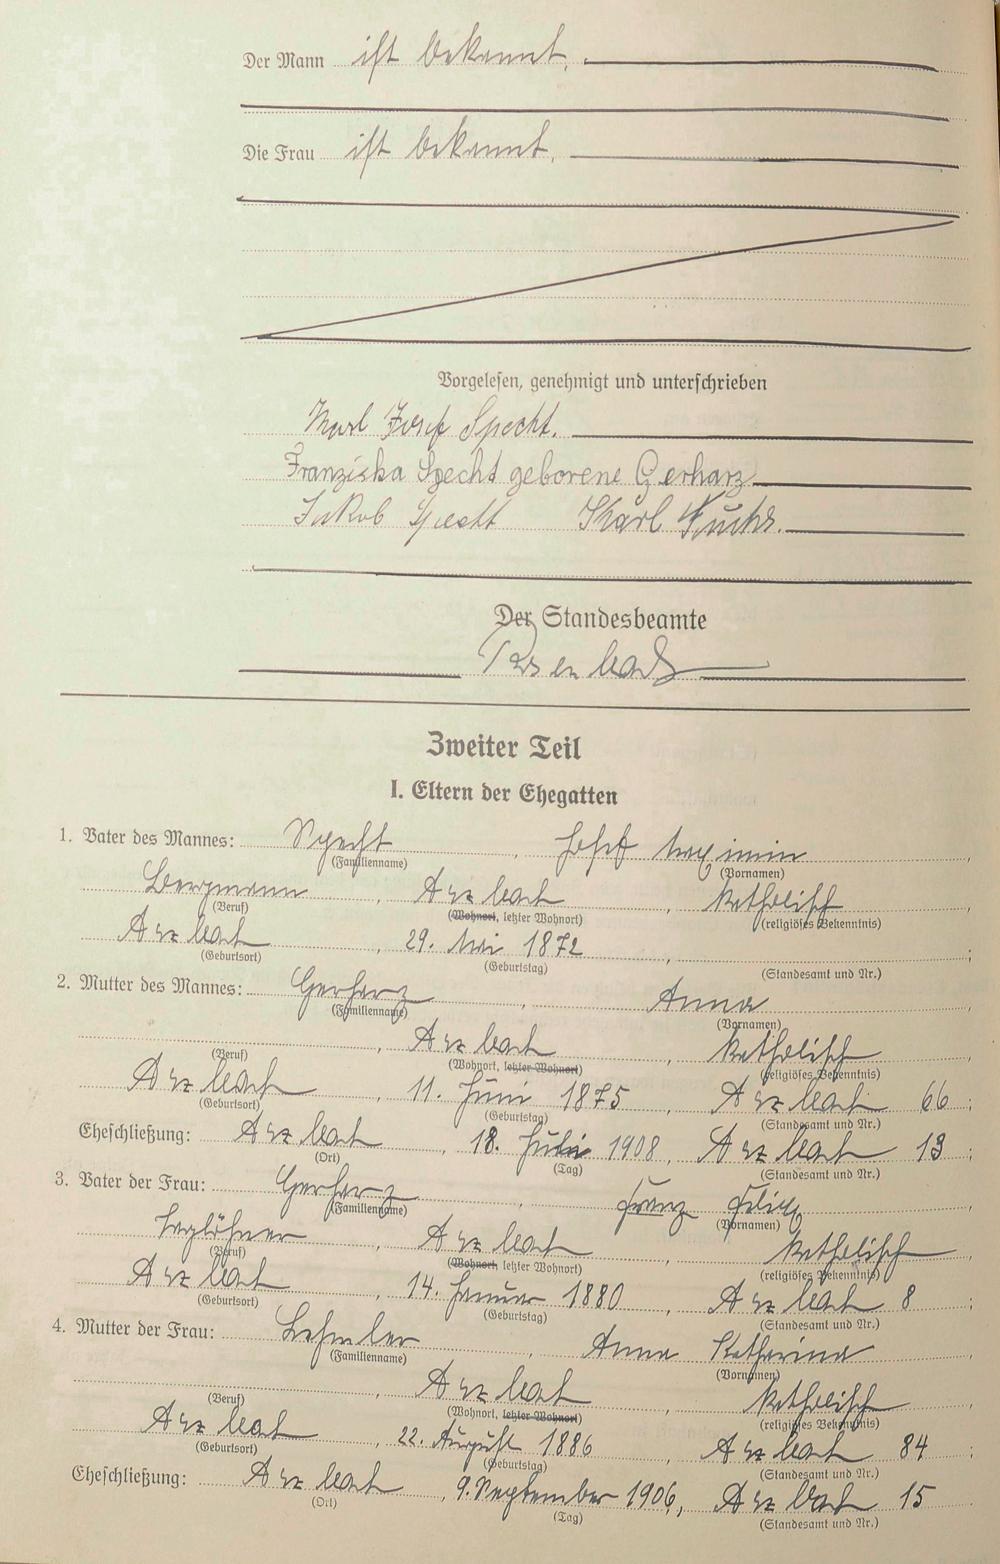 Der Mann ist bekannt.
Die Frau ist bekannt.
Vorgelesen, genehmigt und unterschrieben
Karl Josef Specht.
Franziska Specht geborene Gerharz
Jakob Specht Karl Fuchs.
Der Standesbeamte
Zweiter Teil
I. Eltern der Ehegatten
1. Vater des Mannes: Specht, Josef Maximin,
(Familienname) (Vornamen)
Bergmann, Arzbach, katholisch
(Beruf) (Wohnort, letzter Wohnort) (religiöses Bekenntnis)
Arzbach, 29. Mai 1872, ;
(Geburtsort) (Geburtstag) (Standesamt und Nr.)
2. Mutter des Mannes: Gerharz, Anna,
(Familienname) (Vornamen)
, Arzbach, katholisch
(Beruf) (Wohnort, letzter Wohnort) (religiöses Bekenntnis)
Arzbach, 11. Juni 1875, Arzbach 66;
(Geburtsort) (Geburtstag) (Standesamt und Nr.)
Eheschließung: Arzbach, 18. Juli 1908, Arzbach 13;
(Ort) (Tag) (Standesamt und Nr.)
3. Vater der Frau: Gerharz, Franz,
(Familienname) (Vornamen)
Taglöhner, Arzbach, katholisch
(Beruf) (Wohnort, letzter Wohnort) (religiöses Bekenntnis)
Arzbach, 14. Januar 1880, Arzbach 8;
(Geburtsort) (Geburtstag) (Standesamt und Nr.)
4. Mutter der Frau: Lehmler, Anna Katharina,
(Familienname) (Vornamen)
, Arzbach, katholisch
(Beruf) (Wohnort, letzter Wohnort) (religiöses Bekenntnis)
Arzbach, 22. August 1886, Arzbach 84;
(Geburtsort) (Geburtstag) (Standesamt und Nr.)
Eheschließung: Arzbach, 9. September 1906, Arzbach 15
(Ort) (Tag) (Standesamt und Nr.)